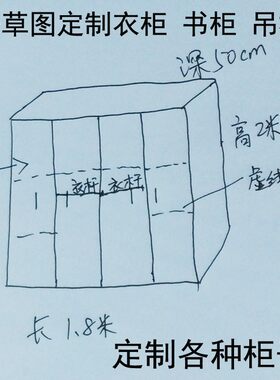 草图定制衣柜 书柜 吊
深50cm
高2米
衣杆 衣杆
虚线
长 1.8米
定制各种柜子